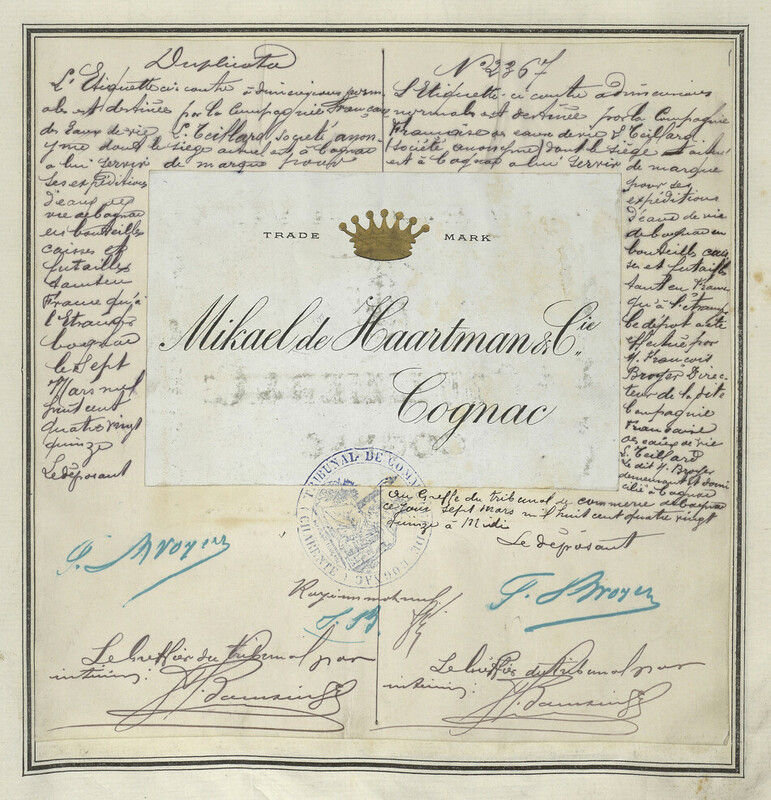 Duplicata
L'Etiquette ci contre à dimensions norm
ales est destinée par la Compagnie Françai
des Eaux de vie L. Teillard, société anon
yme dont le siège actuel est à Cognac
à lui servir de marque pour
ses expéditions
d'eaux de
vie de Cognac
en bouteilles
caisses et
futailles
tant en
France qu'à
l'Etranger
Cognac
le Sept
Mars mil
huit cent
quatre vingt
quinze
Le déposant
N° 2367
L'Etiquette ci contre à dimensions
normales est destinée par la Compagnie
Française des eaux de vie L. Teillard
(société anonyme) dont le siège actuel
est à Cognac à lui servir de marque
pour ses
expéditions
d'eaux de vie
de Cognac en
bouteilles cais
ses et futailles
tant en France
qu'à l'étranger
Le dépot a été
effectué par
M. François
Broyer Direc
teur de la dite
Compagnie
Francaise
des eaux de vie
L. Teillard
Le dit M. Broyer
demeurant et domi
cilié à Cognac
TRADE MARK
Mikael de Haartman & Cie
Cognac
TRIBUNAL DE COMMERCE DE COGNAC
(CHARENTE)
Au Greffe du tribunal de commerce de Cognac
ce jour Sept Mars mil huit cent quatre vingt
quinze à Midi
Le déposant
F. Broyer
F. Broyer
F. B.
Le Greffier du tribunal par
intérim:
Le Greffier du tribunal par
intérim: